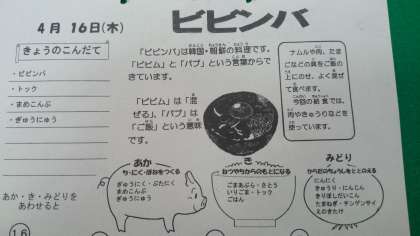 4月 16日(木)
ビビンバ
きょうのこんだて
・ビビンバ
・トック
・まめこんぶ
・ぎゅうにゅう
「ビビンバ」は韓国・朝鮮の料理です。
「ビビム」と「パブ」という言葉からで
きています。
「ビビム」は「混
ぜる」、「パブ」は
「ご飯」という意味
です。
ナムルや肉、たま
ごなどの具をご飯の
上にのせ、よく混ぜ
て食べます。
今回の給食では、
肉やきゅうりなどを
使っています。
あか・き・みどりを
あわせると
16
あか
ち・にく・ほねをつくる
ぎゅうにく・ぶたにく
まめこんぶ
ぎゅうにゅう
き
ねつやちからのもとになる
ごまあぶら・さとう
いりごま・トック
ごはん
みどり
からだのちょうしをととのえる
にんにく
きゅうり・にんじん
きりぼしだいこん
たまねぎ・チンゲンサイ
えのきたけ